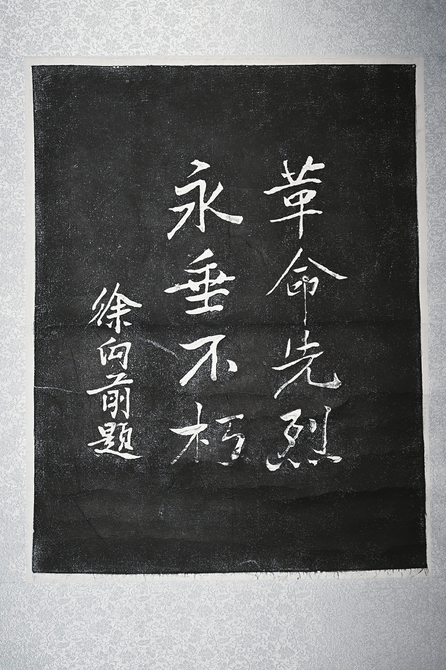 革命先烈
永垂不朽
徐向前题